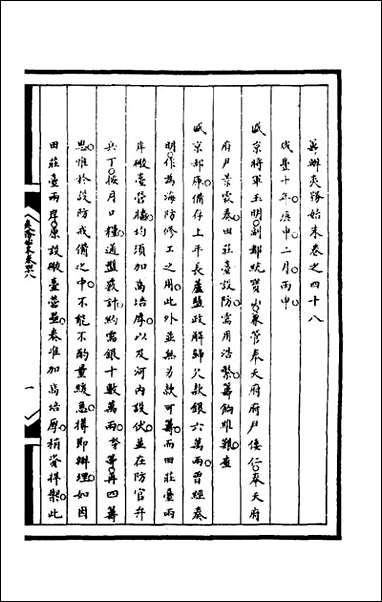 籌辦夷務始末卷之四十八
咸豐十年庚申二月丙申
盛京將軍玉明副都統賀山兼管奉天府府尹倭仁奉天府
府尹景霖奏田莊臺設防需用浩繁籌餉維艱查
盛京部庫備存上年長蘆鹽政解歸欠款銀六萬兩曾經奏
明作為海防修工之用此外並無另款可籌而田莊臺兩
岸礮臺營牆均須加高培厚以及河內設伏並在防官弁
兵丁按月口糧通盤核計約需銀十數萬兩奴等再四籌
思惟於設防戒備之中不能不酌量緩急撙節辦理如因
田莊臺兩岸原設礮臺營壘奏准加高培厚稍資捍禦此
夷務始末卷四八
一